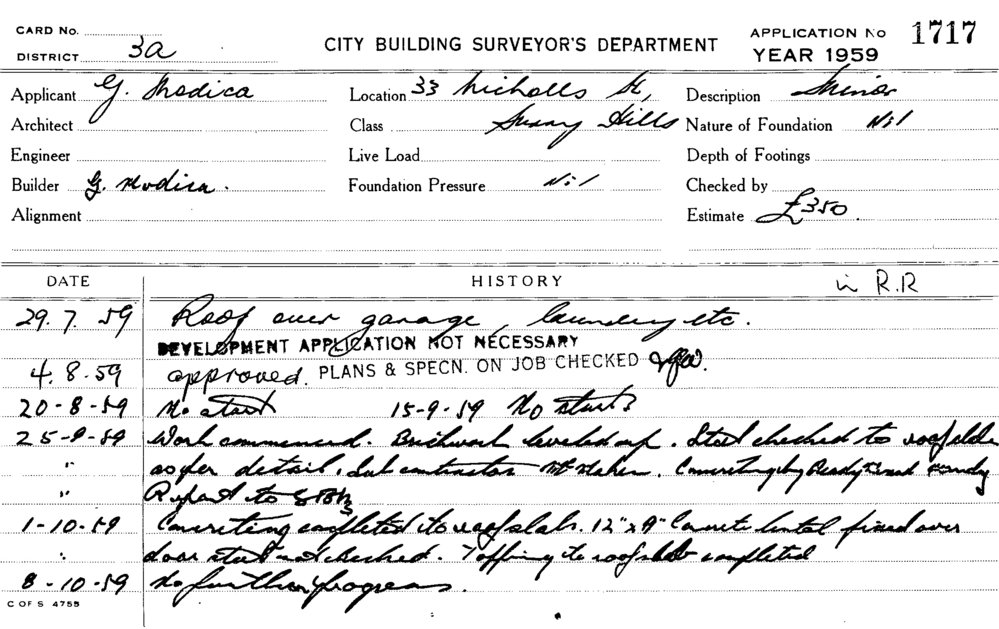 CARD No.
DISTRICT 3a
CITY BUILDING SURVEYOR'S DEPARTMENT
APPLICATION No 1717
YEAR 1959
Applicant G. Modica Location 33 Nicholls St, Description Minor
Architect Class Surry Hills Nature of Foundation Nil
Engineer Live Load Depth of Footings
Builder G. Modica. Foundation Pressure Nil Checked by
Alignment Estimate £350.
DATE HISTORY in R.R
29.7.59 Roof over garage, laundry etc.
DEVELOPMENT APPLICATION NOT NECESSARY
4.8.59 approved. PLANS & SPECN. ON JOB CHECKED
20-8-59 No start 15-9-59 No start
25-9-59 Work commenced. Brickwork leveled up. Steel checked to roof slab
" as per detail. Sub contractor Mr Concreting by Ready mixed
" Report to
1-10-59 Concreting completed to roof slab. 12"x9" Concrete lintel fixed over
" door steel not checked. Topping to roof slab completed
8-10-59 No further progress.
C OF S 4755